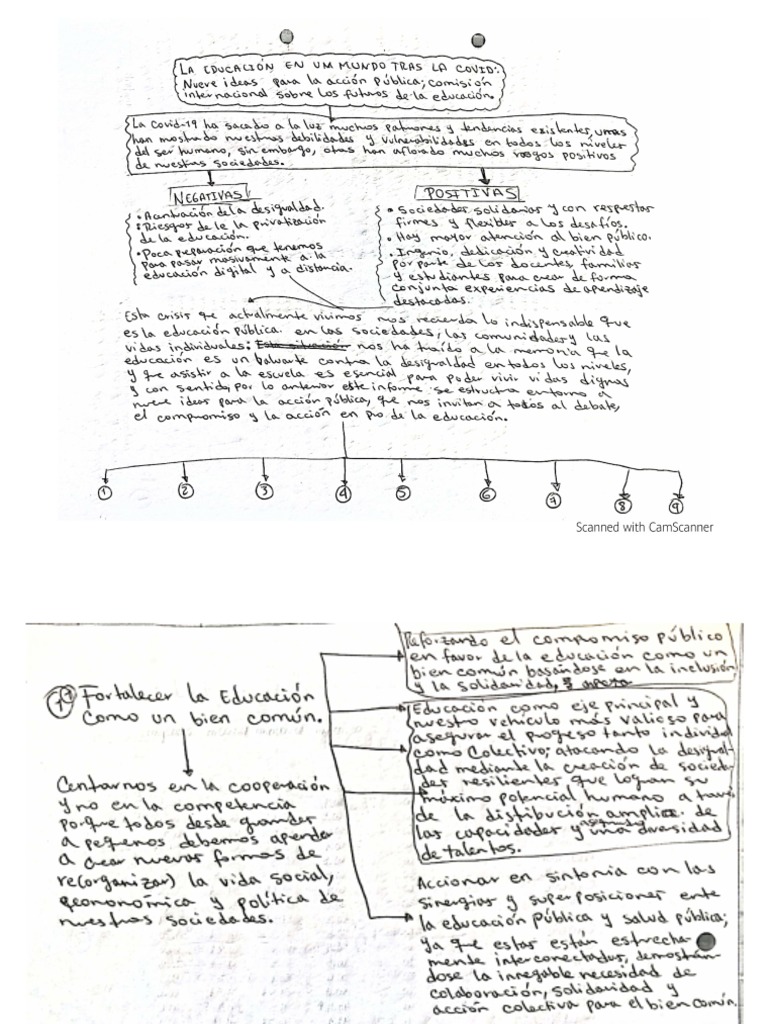 LA EDUCACIÓN EN UM MUNDO TRAS LA COVID:
Nueve ideas para la acción pública; comisión
internacional sobre los futuros de la educación.
La Covid-19 ha sacado a la luz muchos patrones y tendencias existentes, unas
han mostrado nuestras debilidades y vulnerabilidades en todos los niveles
del ser humano, sin embargo, otras han aflorado muchos rasgos positivos
de nuestras sociedades.
NEGATIVAS
• Acentuación de la desigualdad.
• Riesgos de le la privatización
de la educación.
• Poca preparación que tenemos
para pasar masivamente a la
educación digital y a distancia.
POSITIVAS
• Sociedades solidarias y con respestas
firmes y flexibles a los desafíos.
• Hay mayor atención al bien público.
• Ingenio, dedicación y creatividad
por parte de los docentes, familias
y estudiantes para crear de forma
conjunta experiencias de aprendizaje
destacadas.
Esta crisis que actualmente vivimos nos recuerda lo indispensable que
es la educación pública en las sociedades, las comunidades y las
vidas individuales: Esta situación nos ha traído a la memoria que la
educación es un baluarte contra la desigualdad en todos los niveles,
y que asistir a la escuela es esencial para poder vivir vidas dignas
y con sentido, por lo anterior este informe se estructra entorno a
nueve ideas para la acción pública, que nos invitan a todos al debate,
el compromiso y la acción en pro de la educación.
1 2 3 4 5 6 7 8 9
Scanned with CamScanner
Fortalecer la Educación
Como un bien común.
Centarnos en la cooperación
y no en la competencia
porque todos desde grandes
a pequeños debemos aprender
a crear nuevas formas de
re(organizar) la vida social,
económica y política de
nuestras sociedades.
Reforzando el compromiso público
en favor de la educación como un
bien común basándose en la inclusión
y la solidaridad,
Educación como eje principal y
nuestro vehículo más valioso para
asegurar el progeso tanto individual
como colectivo; atacando la desigual-
dad mediante la creación de socieda-
des resilientes que logran su
máximo potencial humano a través
de la distribución amplia de
las capacidades y asegurando una diversidad
de talentos.
Accionar en sintonia con las
sinergias y superposiciones ente
la educación pública y salud pública;
ya que estas están estrecha
mente interconectadas, demostrán-
dose la innegable necesidad de
colaboración, solidaridad y
acción colectiva para el bien común.